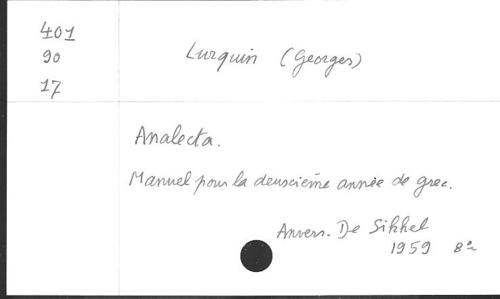 401
90
17
Lurquin (Georges)
Analecta.
Manuel pour la deuxième année de grec.
Anvers. De Sikkel
1959 8°